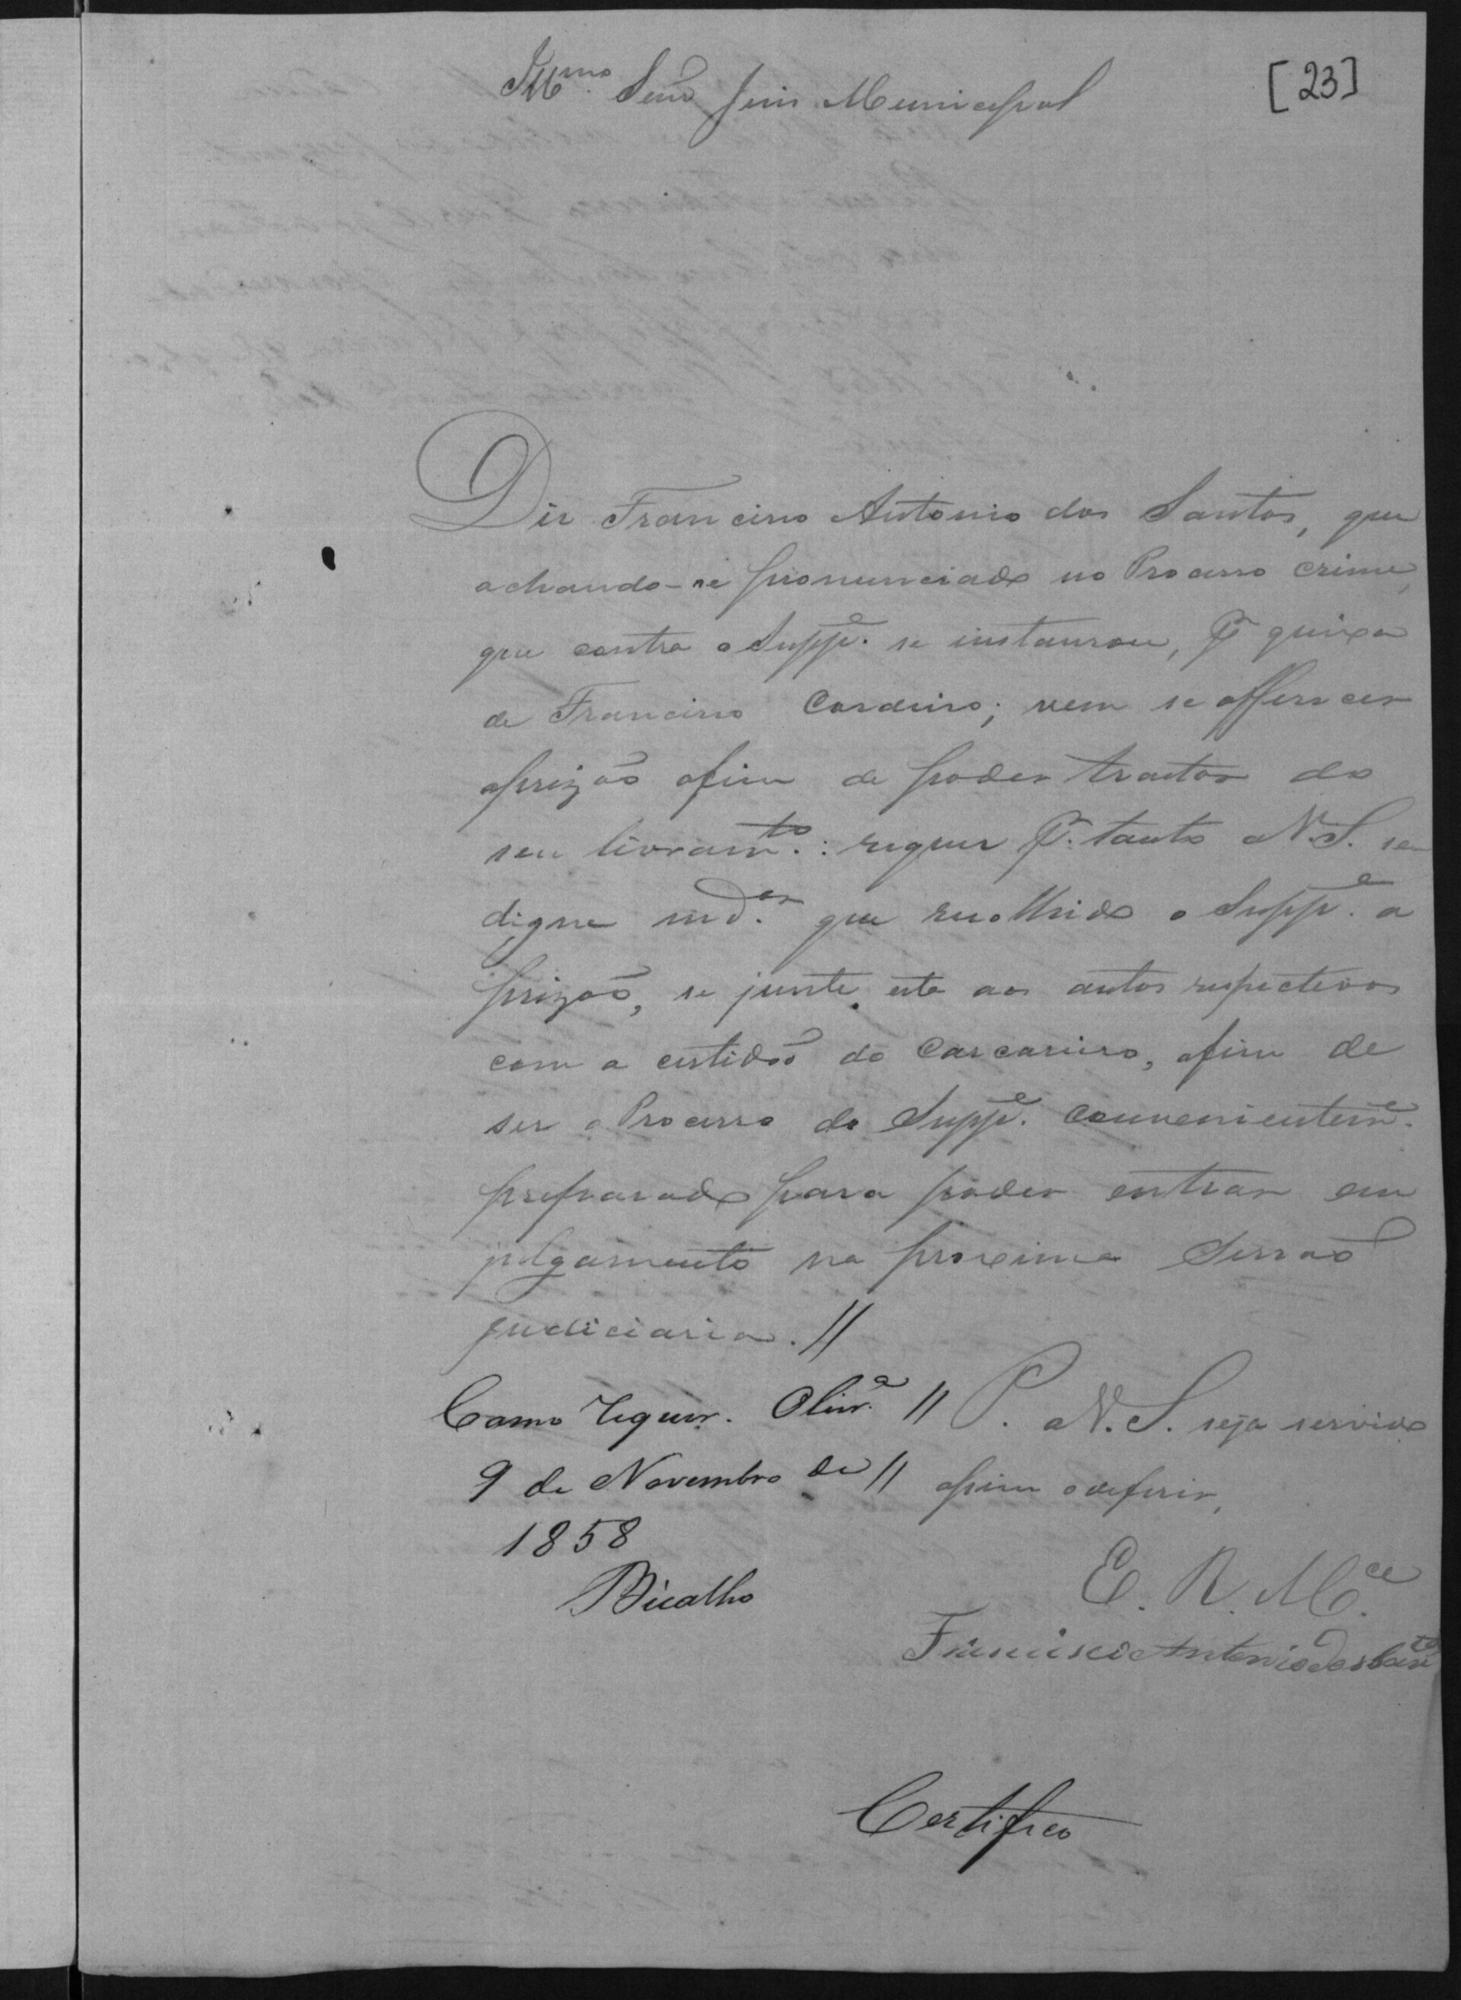 [23]
Illmo. Senr Juis Municipal
Diz Francisco Antonio dos Santos, que
achando-se pronunciado no Processo crime,
que contra o Suppe. se instaurou, Pr queixa
de Francisco Cordeiro; vem se offerecer
aprizão afim de poder tractar do
seu livramto.: requer Pr. tanto a V. S. se
digne mdar. que recolhido o Suppe. a
prizão, se junte esta aos autos respectivos
com a certidão do Carcareiro, afim de
ser o Processo do Suppe. convenienteme.
preparado para poder entrar em
julgamento na proxima Sessão
judiciaria. //
Como requer. Olivra. // P. a V. S. seja servido
9 de Novembro de // assim o deferir,
1858
Bicalho
E. R. Mce.
Francisco Antonio dos Santos
Certifico